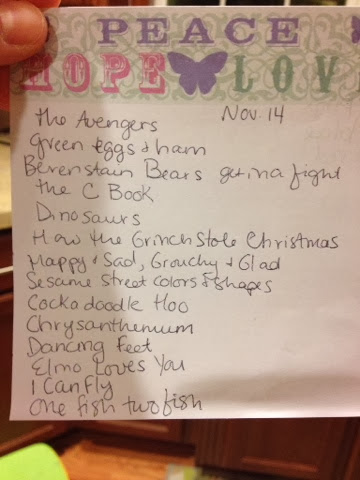 PEACE
HOPE LOV
Nov. 14
the Avengers
green eggs & ham
Berenstain Bears get in a fight
the C Book
Dinosaurs
How the Grinch Stole Christmas
Happy & Sad, Grouchy & Glad
Sesame Street Colors & Shapes
Cockadoodle Hoo
Chrysanthemum
Dancing feet
Elmo Loves You
I Can Fly
One fish two fish